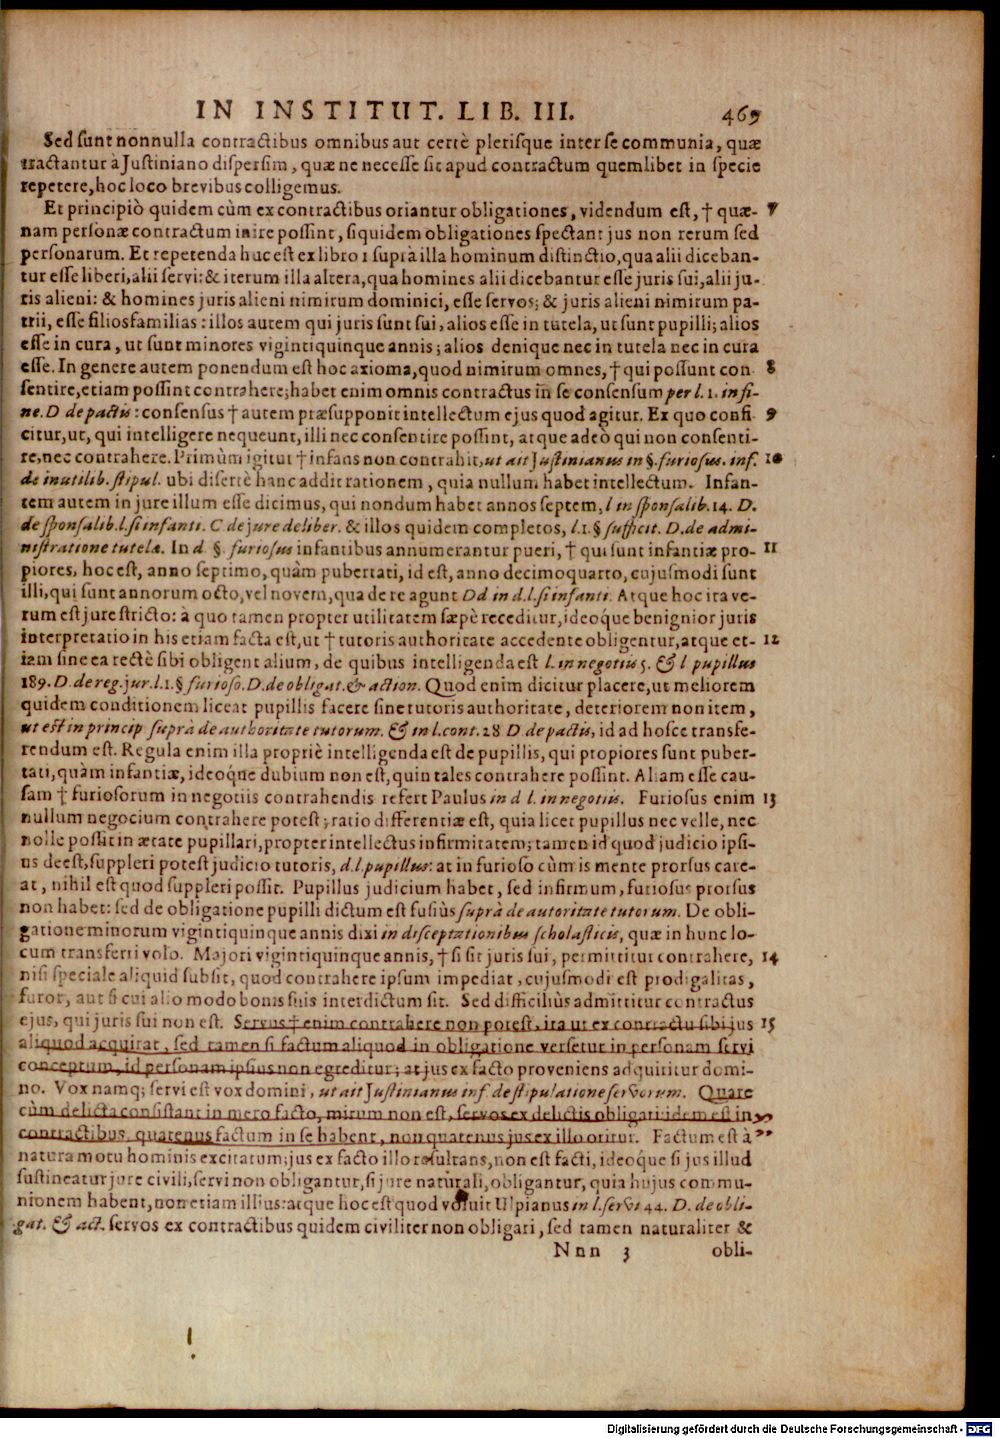 IN INSTITUT. LIB. III. 469
Sed sunt nonnulla contractibus omnibus aut certè plerisque inter se communia, quæ
tractantur à Justiniano dispersim, quæ ne necesse sit apud contractum quemlibet in specie
repetere, hoc loco brevibus colligemus.
Et principiò quidem cùm ex contractibus oriantur obligationes, videndum est, † quæ- 7
nam personæ contractum inire possint, siquidem obligationes spectant jus non rerum sed
personarum. Et repetenda huc est ex libro 1 suprà illa hominum distinctio, qua alii diceban-
tur esse liberi, alii servi: & iterum illa altera, qua homines alii dicebantur esse juris sui, alii ju-
ris alieni: & homines juris alieni nimirum dominici, esse servos; & juris alieni nimirum pa-
trii, esse filiosfamilias: illos autem qui juris sunt sui, alios esse in tutela, ut sunt pupilli; alios
esse in cura, ut sunt minores vigintiquinque annis; alios denique nec in tutela nec in cura
esse. In genere autem ponendum est hoc axioma, quod nimirum omnes, † qui possunt con- 8
sentire, etiam possint contrahere; habet enim omnis contractus in se consensum per l. 1. in fi-
ne. D de pactis: consensus † autem præsupponit intellectum ejus quod agitur. Ex quo confi 9
citur, ut, qui intelligere nequeunt, illi nec consentire possint, atque adeò qui non consenti-
re, nec contrahere. Primùm igitur † infans non contrahit, ut ait Justinianus in §. furiosus. inf. 10
de inutilib. stipul. ubi disertè hanc addit rationem, quia nullum habet intellectum. Infan-
tem autem in jure illum esse dicimus, qui nondum habet annos septem, l in sponsalib. 14. D.
de sponsalib. l. si infanti. C de jure deliber. & illos quidem completos, l. 1. § sufficit. D. de admi-
nistratione tutelæ. In d §. furiosus infantibus annumerantur pueri, † qui sunt infantiæ pro- 11
piores, hoc est, anno septimo, quàm pubertati, id est, anno decimoquarto, cujusmodi sunt
illi, qui sunt annorum octo, vel novem, qua de re agunt Dd in d. l. si infanti. Atque hoc ita ve-
rum est jure stricto: à quo tamen propter utilitatem sæpè receditur, ideoque benignior juris
interpretatio in his etiam facta est, ut † tutoris authoritate accedente obligentur, atque et- 12
iam sine ea rectè sibi obligent alium, de quibus intelligenda est l. in negotiis 5. & l pupillus
189. D. de reg. jur. l. 1. § furioso. D. de obligat. & action. Quod enim dicitur placere, ut meliorem
quidem conditionem liceat pupillis facere sine tutoris authoritate, deteriorem non item,
ut est in princip suprà de authoritate tutorum. & in l. cont. 28 D de pactis, id ad hosce transfe-
rendum est. Regula enim illa propriè intelligenda est de pupillis, qui propiores sunt puber-
tati, quàm infantiæ, ideoque dubium non est, quin tales contrahere possint. Aliam esse cau-
sam † furiosorum in negotiis contrahendis refert Paulus in d l. in negotiis. Furiosus enim 13
nullum negocium contrahere potest; ratio differentiæ est, quia licet pupillus nec velle, nec
nolle possit in ætate pupillari, propter intellectus infirmitatem; tamen id quod judicio ipsi-
us deest, suppleri potest judicio tutoris, d. l. pupillus: at in furioso cùm is mente prorsus care-
at, nihil est quod suppleri possit. Pupillus judicium habet, sed infirmum, furiosus prorsus
non habet: sed de obligatione pupilli dictum est fusiùs suprà de autoritate tutorum. De obli-
gatione minorum vigintiquinque annis dixi in disceptationibus scholasticis, quæ in hunc lo-
cum transferri volo. Majori vigintiquinque annis, † si sit juris sui, permittitur contrahere, 14
nisi speciale aliquid subsit, quod contrahere ipsum impediat, cujusmodi est prodigalitas,
furor, aut si cui alio modo bonis suis interdictum sit. Sed difficiliùs admittitur contractus
ejus, qui juris sui non est. Servus † enim contrahere non potest, ita ut ex contractu sibi jus 15
aliquod acquirat, sed tamen si factum aliquod in obligatione versetur in personam servi
conceptum, id personam ipsius non egreditur; at jus ex facto proveniens adquiritur domi-
no. Vox namq; servi est vox domini, ut ait Justinianus inf. de stipulatione servorum. Quare
cùm delicta consistant in mero facto, mirum non est, servos ex delictis obligari: idem est in
contractibus, quatenus factum in se habent, non quatenus jus ex illo oritur. Factum est à
natura motu hominis excitatum; jus ex facto illo resultans, non est facti, ideoque si jus illud
sustineatur jure civili, servi non obligantur, si jure naturali, obligantur, quia hujus commu-
nionem habent, non etiam illius: atque hoc est quod voluit Ulpianus in l. servi 44. D. de obli-
gat. & act. servos ex contractibus quidem civiliter non obligari, sed tamen naturaliter &
Nnn 3 obli-
Digitalisierung gefördert durch die Deutsche Forschungsgemeinschaft - DFG